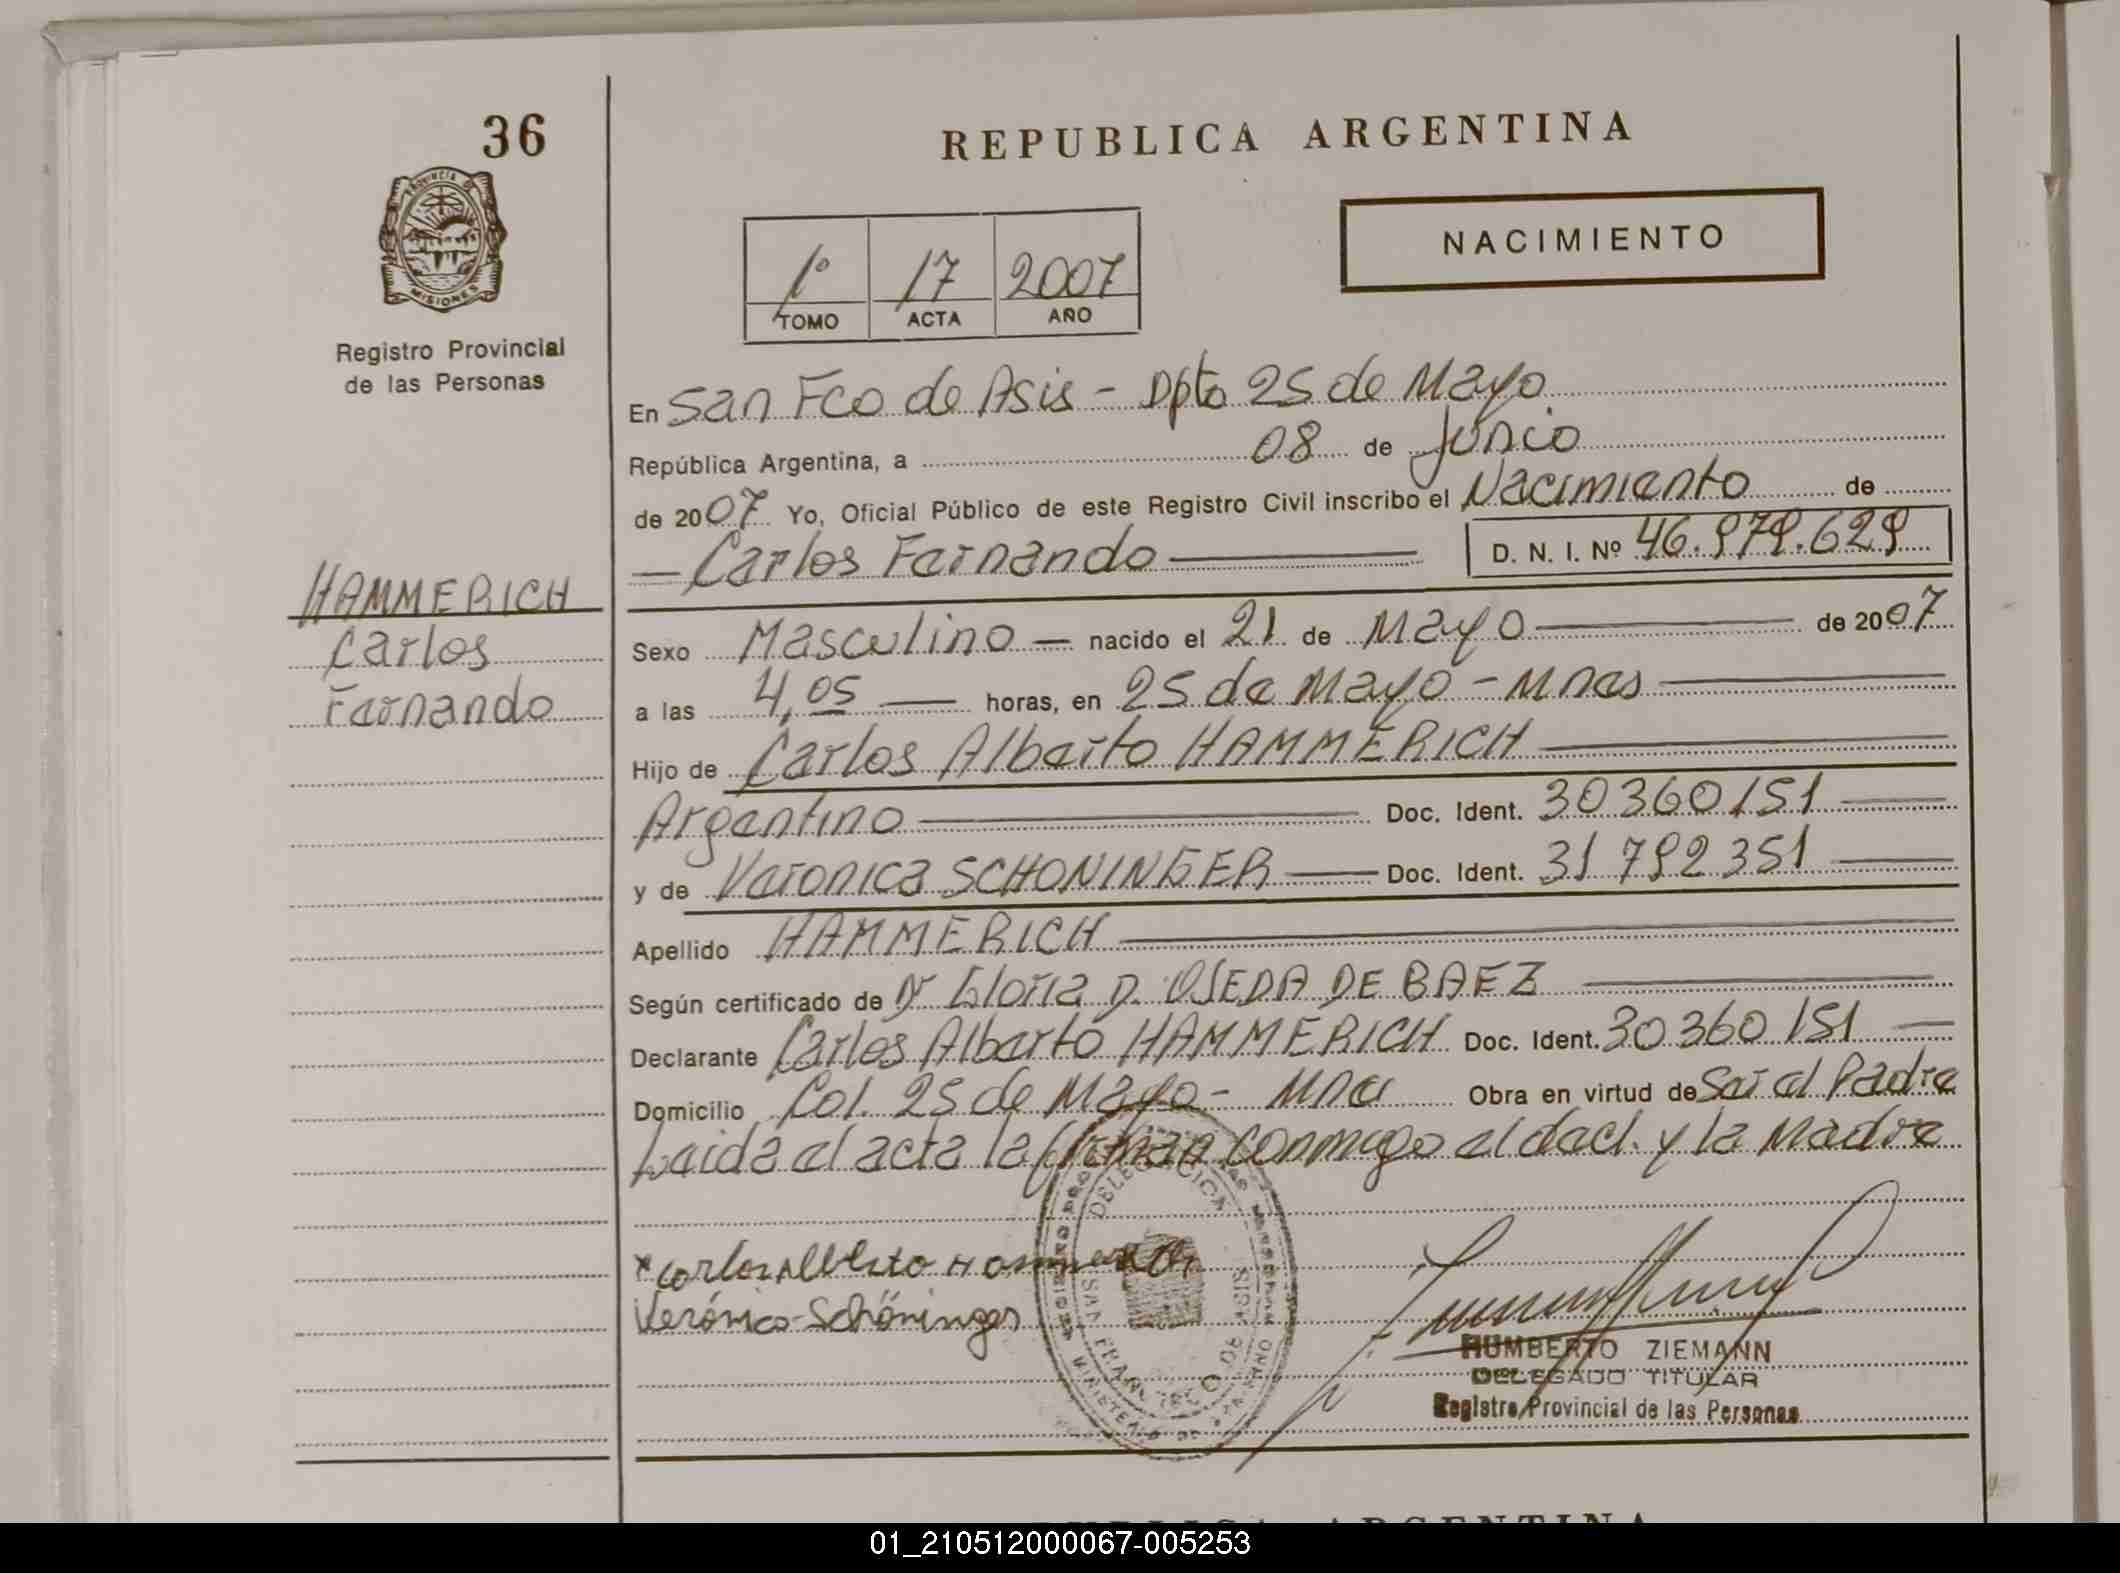 36
PROVINCIA DE
MISIONES
Registro Provincial
de las Personas
HAMMERICH
Carlos
Fernando
REPUBLICA ARGENTINA
NACIMIENTO
1º 17 2007
TOMO ACTA AÑO
En San Fco de Asis - Dpto 25 de Mayo
República Argentina, a 08 de Junio
de 2007 Yo, Oficial Público de este Registro Civil inscribo el Nacimiento de
Carlos Fernando D. N. I. Nº 46.979.629
Sexo Masculino nacido el 21 de Mayo de 2007
a las 4,05 horas, en 25 de Mayo - Mnes
Hijo de Carlos Alberto HAMMERICH
Argentino Doc. Ident. 30360151
y de Veronica SCHONINGER Doc. Ident. 31 792 351
Apellido HAMMERICH
Según certificado de Dr Gloria D. OJEDA DE BAEZ
Declarante Carlos Alberto HAMMERICH Doc. Ident. 30 360 151
Domicilio Col. 25 de Mayo - Mnes Obra en virtud de Ser el Padre
Leida el acta la firman conmigo el decl. y la Madre
x Carlos Alberto Hammerich
Verónica Schöninger
DELEGACION
SAN FRANCISCO DE ASIS
HUMBERTO ZIEMANN
DELEGADO TITULAR
Registro Provincial de las Personas
REPUBLICA ARGENTINA
01_210512000067-005253